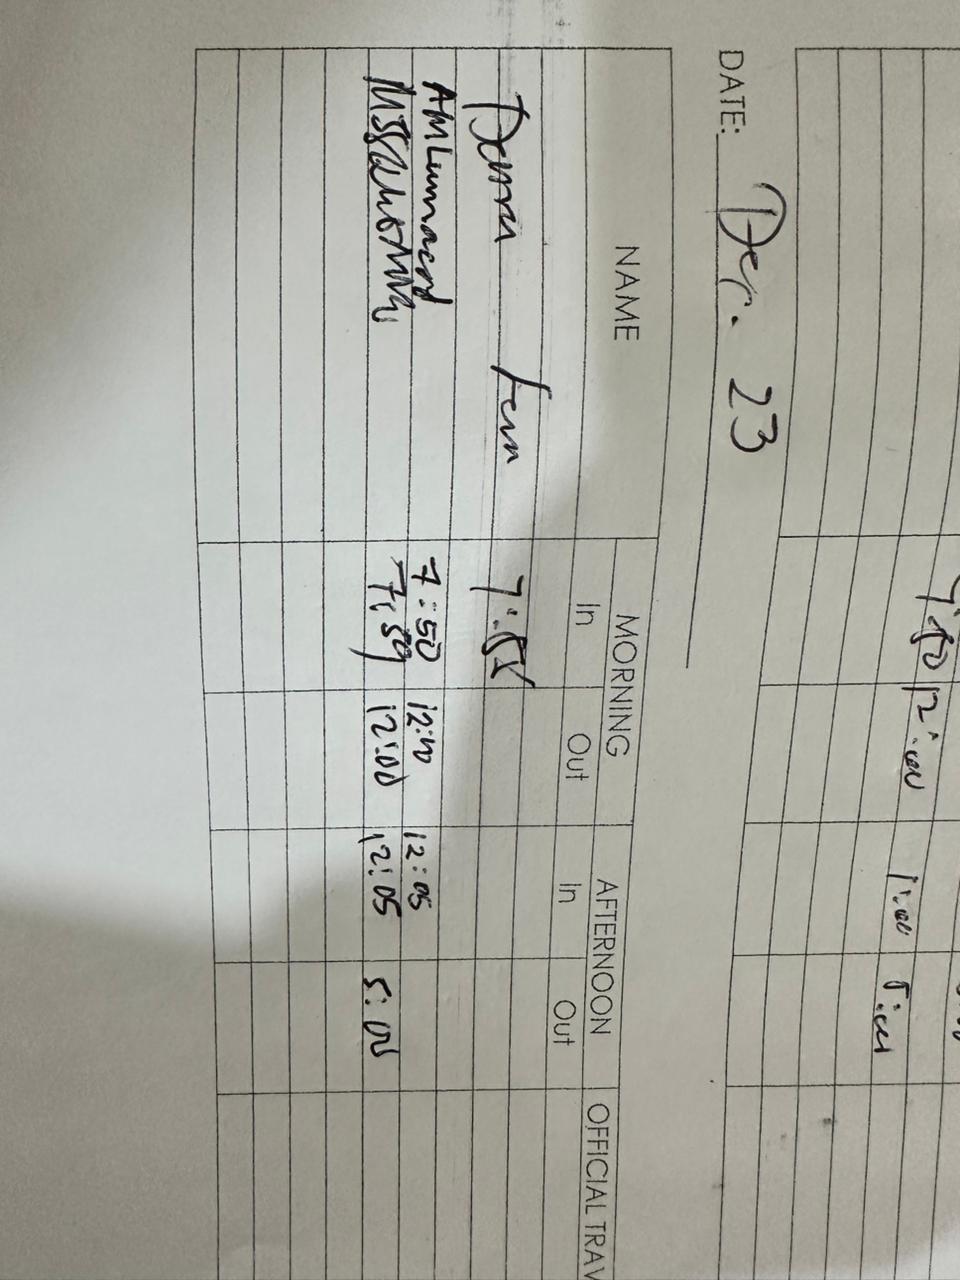 7:50 12:00 1:00 5:00
DATE: Dec. 23
NAME MORNING AFTERNOON OFFICIAL TRAV
In Out In Out
7:55
AMLumacad 7:50 12:00 12:05
7:59 12:00 12:05 5:00